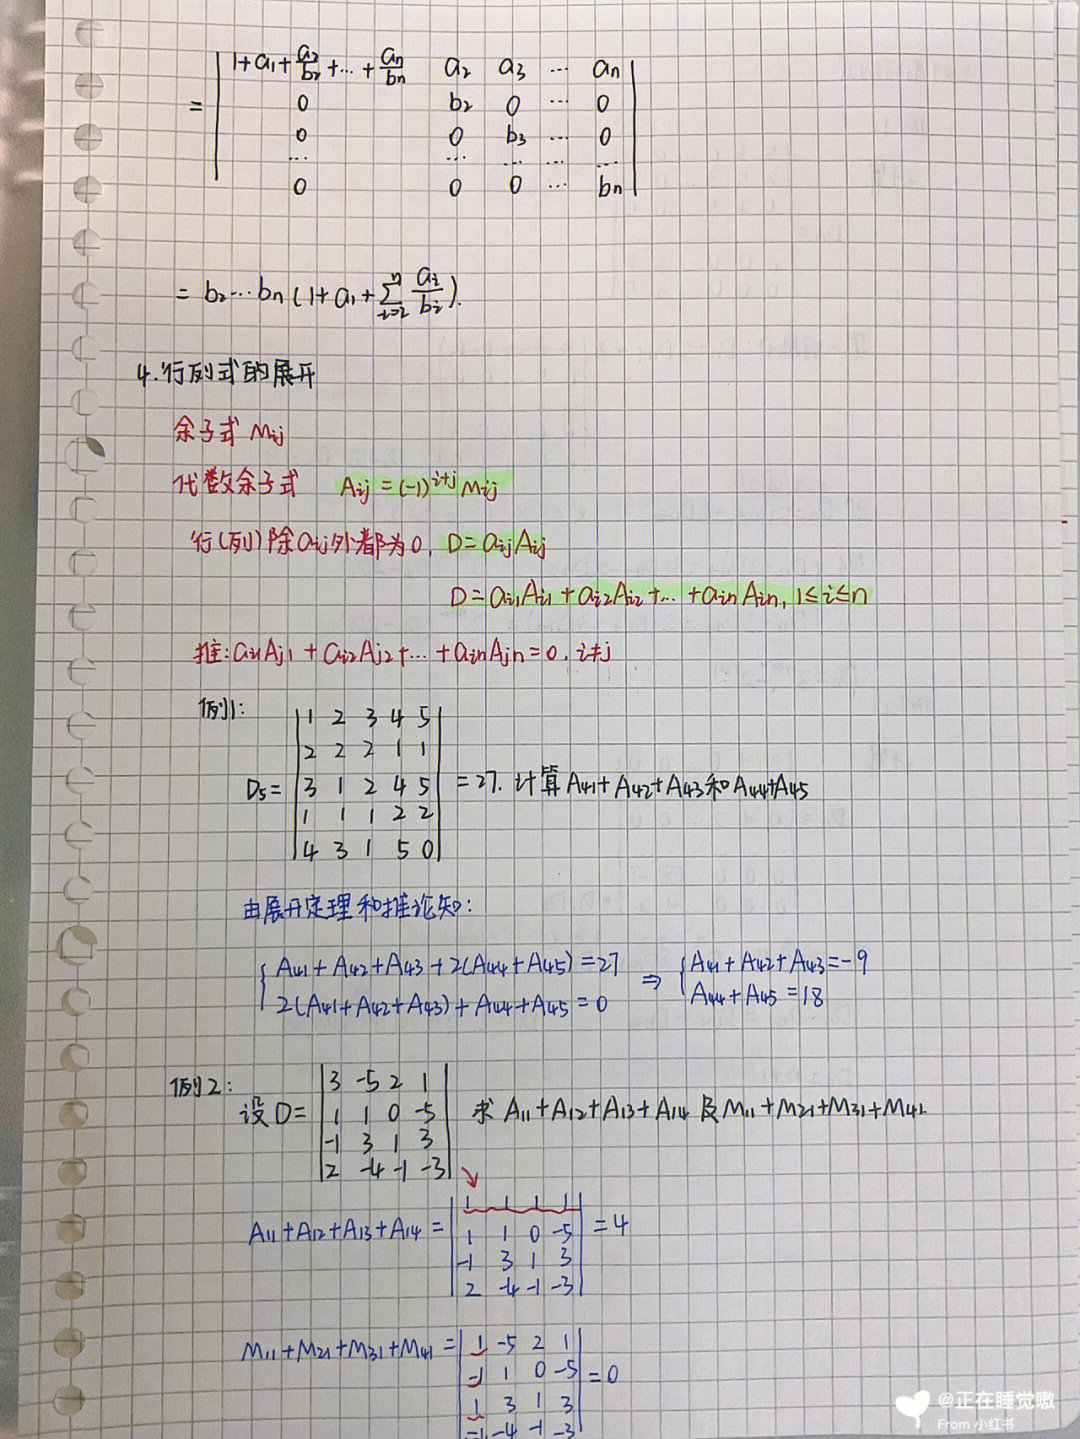 = | 1+a₁+a₂/b₂+…+aₙ/bₙ a₂ a₃ … aₙ |
0 b₂ 0 … 0
0 0 b₃ … 0
… … … … …
0 0 0 … bₙ
= b₂…bₙ(1+a₁+∑ⁿᵢ₌₂ aᵢ/bᵢ).
4.行列式的展开
余子式 Mij
代数余子式 Aij=(-1)^(i+j) Mij
行(列)除aij外都为0, D=aijAij
D=ai1Ai1+ai2Ai2+…+ainAin, 1≤i≤n
推:ai1Aj1+ai2Aj2+…+ainAjn=0, i≠j
例1:
1 2 3 4 5
2 2 2 1 1
D₅= 3 1 2 4 5 =27. 计算A41+A42+A43和A44+A45
1 1 1 2 2
4 3 1 5 0
由展开定理和推论知:
{ A41+A42+A43+2(A44+A45)=27 ⇒ { A41+A42+A43=-9
2(A41+A42+A43)+A44+A45=0 A44+A45=18
例2:
3 -5 2 1
设D= 1 1 0 -5 求 A11+A12+A13+A14 及M11+M21+M31+M41
-1 3 1 3
2 -4 -1 -3
1 1 1 1
A11+A12+A13+A14= 1 1 0 -5 =4
-1 3 1 3
2 -4 -1 -3
M11+M21+M31+M41= 1 -5 2 1
-1 1 0 -5 =0
1 3 1 3
-1 -4 -1 -3
@正在睡觉嗷
From 小红书